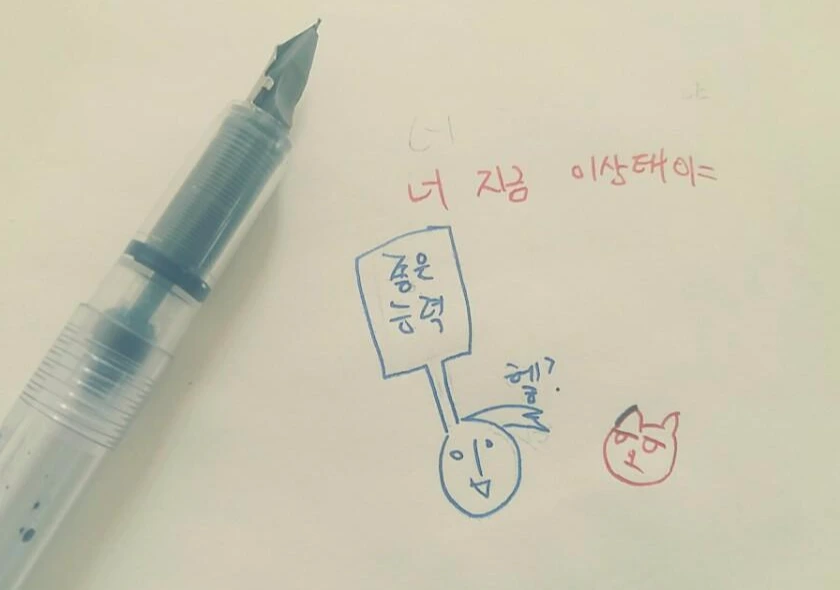 너
너 지금 이상태야
좋은
능력
헴?